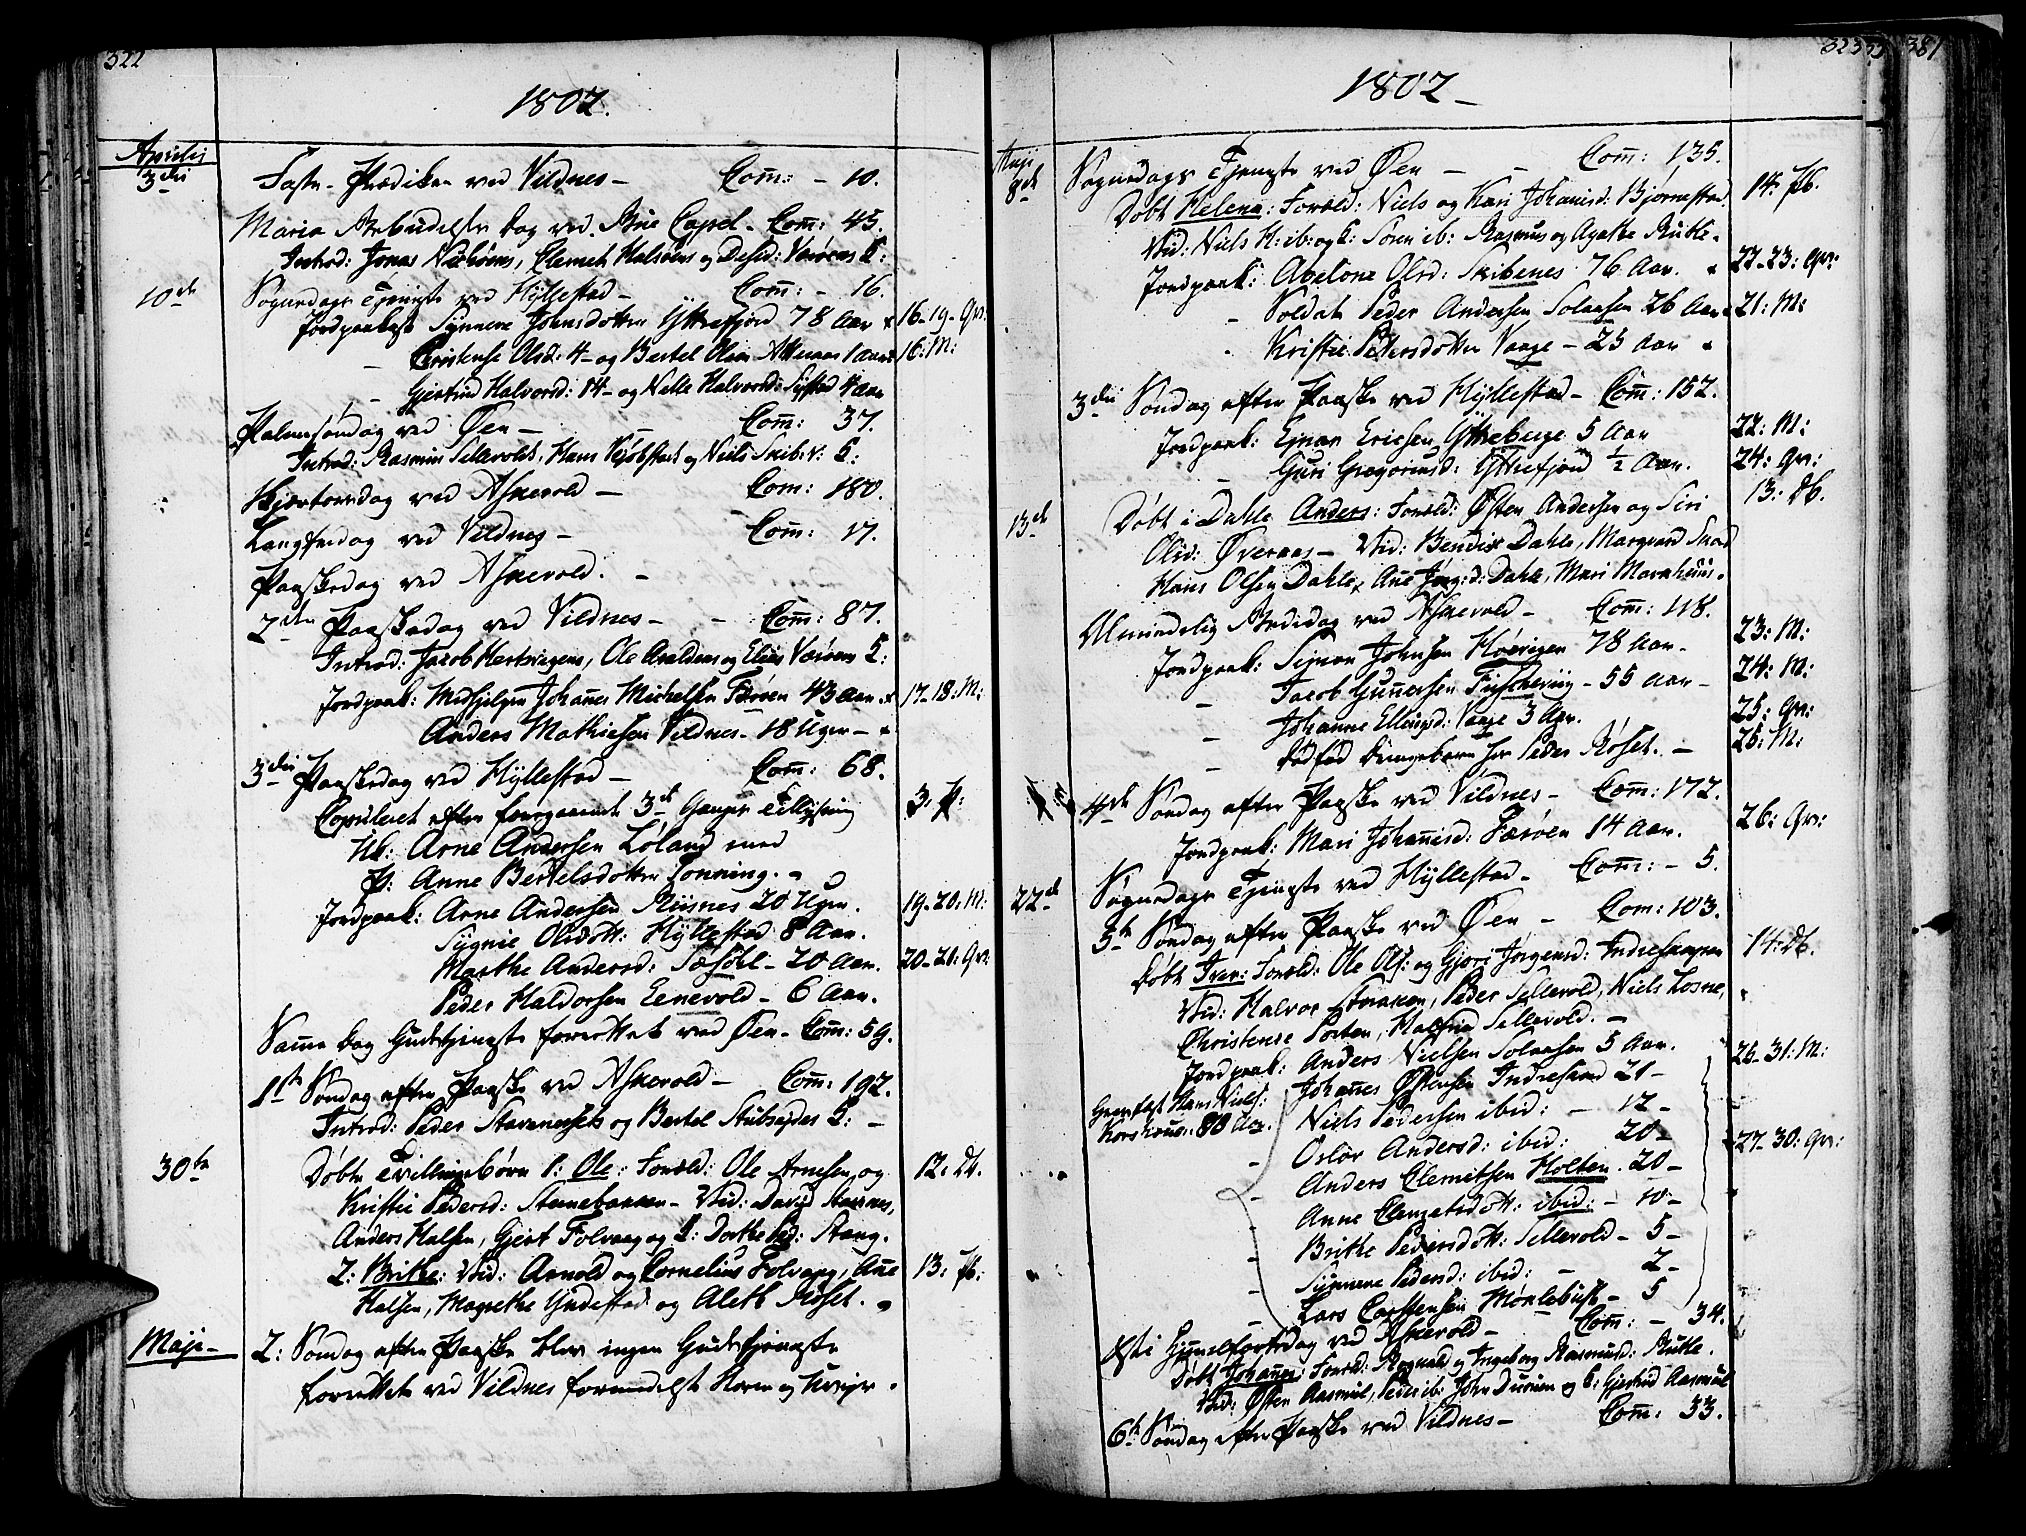 322
1802.
Aprilis
3die Faste-Prædiken ved Vildnes - Com̄: - 10.
Mariæ Bebudelses Dag ved Bue Capel - Com̄: 45.
Introd: Jonas, Clemet Halsøens og Værøens K:
10de Søgnedags Tjeneste ved Hyllestad - Com̄: - 16.
Jordpaakast Synneve Johnsdotter Yttrefjord 78 Aar 16-19-Qv:
Christense Olsd: 4 - og Bertel Olsen 1 Aar 16: M:
Gjertrud Halvorsd: 14 - og Halvorsd: Systad 4 Aar
Palmesøndag ved Øen - Com̄: 37.
Introd: Rasmus Sellevolds, Hans og Niels Skib: v: K:
Skjærtorsdag ved Askevold - Com: 180.
Langfredag ved Vildnes - Com̄: 17.
Paaskedag ved Askevold. -
2den Paaskedag ved Vildnes - - Com̄: 87.
Introd: Jacob Hertvigens, Ole Araldens og Elias Værøens K:
Jordpaak: Medhjelper Johan̄es Michelsen Færøen 43 Aar 17-18: M:
Anders Mathiesen Vildnes - 18 Uger -
3die Paaskedag ved Hyllestad - Com̄: 68.
Copuleret efter foregaaende 3de Ganger Tillysning 3. P:
Uk: Arne Andersen Løland med
P: Anne Bertelsdotter Tonning. -
Jordpaak: Arne Andersen Risnes 20 Uger. 19-20: M:
Sygnie Olsdott: Hyllestad 8 Aar.
Marthe Andersd: Sæsøl - 20 Aar. 20-21: Qv:
Peder Haldorsen Eenevold - 6 Aar.
Sam̄e Dag Gudstjeneste forrettet ved Øen - Com̄: 59.
1ste Søndag efter Paaske ved Askevold - Com̄: 192.
Introd: Peder Stavenesets og Bertel Stubsejdes K: -
30te Døbte Tvillingebørn 1: Ole: Foræld: Ole Arnesen og 12. Db.
Kristie Pedersd: Steenebakken - Vid: David Stavnes,
Anders Halsen, Gjert Folvaag og K: Dorthe Ped: Stang.
2: Brithe: Vid: Arnold og Cornelius Folvaag, An̄e 13: Pb:
Halsen, Magrethe Yndestad og Aleth Røset.
Maji - 2: Søndag efter Paaske blev ingen Gudstjeneste
forrettet ved Vildnes formedelst Storm og Uvejr.
323 381
1802 -
Maji
8de Søgnedags Tjeneste ved Øen - - Com̄: 135.
Døbt Helena: Foræld: Niels og Kari Johanisd: Bjørnestad. 14: Pb.
Vid: Niels H: ib: og K: Søren ib: Rasmus og Agathe Rutle.
Jordpaak: Abelone Olsd: Skibenes 76 Aar. 22-23: Qv:
- Soldat Peder Andersen Solaasen 26 Aar 21: M:
Kristie Pedersdotter Vaage - 25 Aar
3die Søndag efter Paaske ved Hyllestad - Com̄: 152.
Jordpaak: Ejnar Ericsen Yttreberge 5 Aar 22: M:
- Guri Gregoriusd: Yttrefjord ½ Aar. 24: Qv:
13de Døbt i Dahle Anders: Foræld: Østen Andersen og Siri 13: Db.
Olsd: Øveraas - Vid: Bendix Dahle, Margvard Snod
Hans Olsen Dahle, An̄e Jørg: d: Dahle, Mari Marnhuus.
Almindelig Bededag ved Askevold - Com̄: 118.
Jordpaak: Simon Johnsen Høevigen 78 Aar - 23: M:
- Jacob Gun̄ersen Fuskeviig - 55 Aar - 24: M:
- Johanne Ellingsd: Vaage 3 Aar. 25: Qv:
- Dødfød Drengebarn for Peder Røset. - 25: M:
4de Søndag efter Paaske ved Vildnes - Com̄: 172.
Jordpaak: Mari Johan̄isd: Færøen 14 Aar. 26: Qv:
22de Søgnedags Tjeneste ved Hyllestad - Com̄: - 5.
5te Søndag efter Paaske ved Øen - Com: 103.
Døbt Iver: Foræld: Ole Ols: og Gjøri Jørgensd: Indrehammer 14: Db.
Vid: Halvor Storaken, Peder Sellevold, Niels Losne,
Christense Porten, Halsnæ Sellevold. -
Jordpaak: Anders Nielsen Solaasen 5 Aar. 26-31: M:
Grevfast Hans Niels: Johan̄es Østensen Indresand 21 -
Korshavn: 80 Aar. Niels Pedersen ibid: - 12 -
- Oslør Andersd: ibid: 20 - 27-30: Qv:
- Anders Clemitsen Holten 20 -
- Anne Clemetsdott: ibid: - 10 -
- Brithe Pedersdott: Sellevold - 5 -
- Synneve Pedersd: ibid: - 2 -
- Lars Carstensen Mørlebust - 5
Christi Himmelfartsdag ved Askevold - Com̄: - 34.
Døbt Johan̄es: Foræld: Rognald og Ingeborg Rasmusd: Rutle.
Vid: Østen Aasmul, Peder ib: John Duesen og K: Gjertrud Aasmul
6te Søndag efter Paaske ved Vildnes - Com̄: 33.